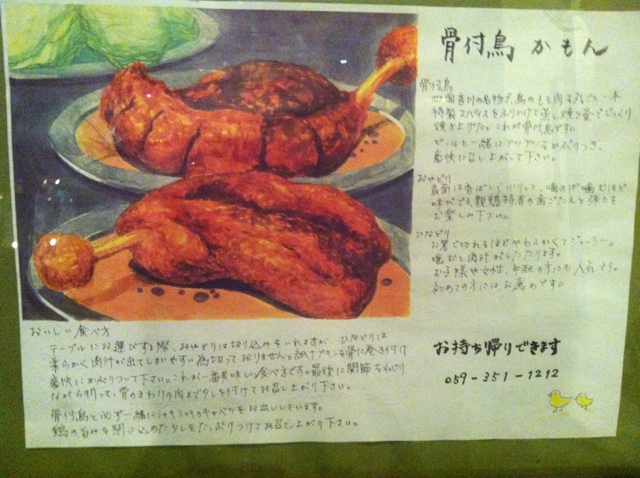 骨付鳥 かもん
骨付鳥
四国香川の名物で、鳥のもも肉を丸ごと一本
特製スパイスをふりかけて蒸し焼き釜でじっくり
焼き上げた。これが骨付鳥です。
ビールと一緒にアツアツをかぶりつき、
豪快に召し上がって下さい。
おやどり
表面は香ばしくパリッと、噛めば噛むほど
味がでる親鶏特有の歯ごたえと弾力を
お楽しみ下さい。
ひなどり
お箸で切れるほどやわらかくてジューシー。
噛むと肉汁がしたたります。
お子様や女性、年配の方にも人気です。
初めての方にはお薦めです。
おいしい食べ方
テーブルにお運びする際、おやどりは切り込みをいれますが、ひなどりは
柔らかく肉汁が出てしまいやすい為切っておりません。紙ナプキンを骨に巻き付け
豪快にかぶりついて下さい。これが一番美味しい食べ方です。最後に関節をねじり
ながら持って、骨のまわりの肉までタレを付けてお召し上がり下さい。
骨付鳥と必ず一緒にシャキシャキのキャベツをお出ししています。
鶏の旨みを閉じ込めたタレをたっぷりつけてお召し上がり下さい。
お持ち帰りできます
059-351-1212